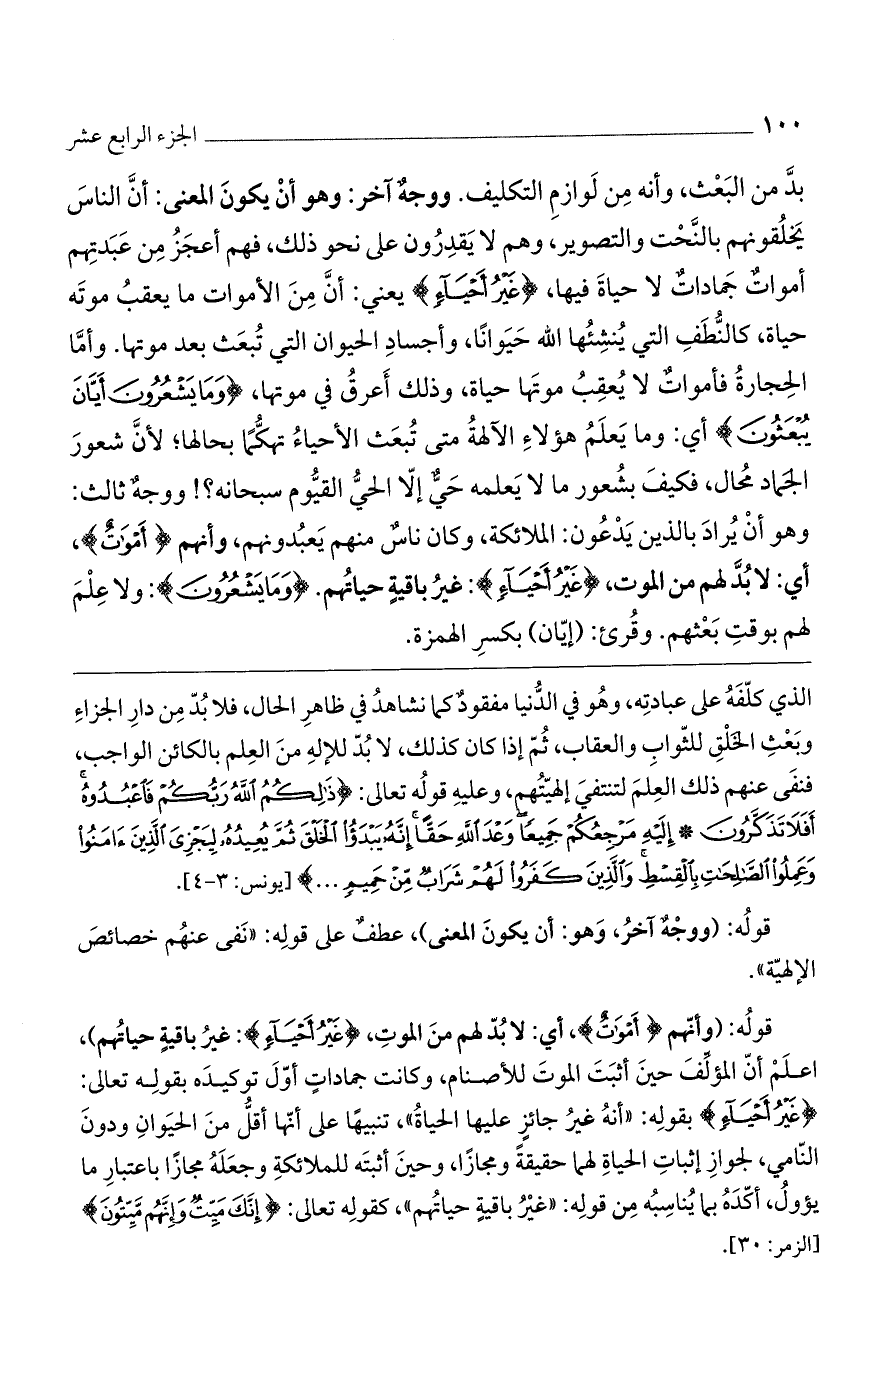 ١٠٠ الجزء الرابع عشر
بدَّ من البَعْث، وأنه مِن لَوازمِ التكليف. ووجهٌ آخر: وهو أنْ يكونَ المعنى: أنَّ الناسَ
يَخلُقونهم بالنَّحْت والتصوير، وهم لا يَقدِرُون على نحو ذلك، فهم أعجَزُ مِن عَبَدتِهم
أمواتٌ جَماداتٌ لا حياةَ فيها، ﴿غَيْرُ أَحْيَآءٍ﴾ يعني: أنَّ مِنَ الأموات ما يعقبُ موتَه
حياة، كالنُّطَفِ التي يُنشِئُها الله حَيَوانًا، وأجسادِ الحيوان التي تُبعَث بعد موتها. وأمَّا
الحِجارةُ فأمواتٌ لا يُعقِبُ موتَها حياة، وذلك أَعرقُ في موتها، ﴿وَمَا يَشْعُرُونَ أَيَّانَ
يُبْعَثُونَ﴾ أي: وما يَعلَمُ هؤلاءِ الآلهةُ متى تُبعَث الأحياءُ تهكُّمًا بحالها؛ لأنَّ شعورَ
الجَماد مُحال، فكيفَ بشُعور ما لا يَعلمه حَيٌّ إلّا الحيُّ القيُّوم سبحانه؟! ووجهٌ ثالث:
وهو أنْ يُرادَ بالذين يَدْعُون: الملائكة، وكان ناسٌ منهم يَعبُدونهم، وأنهم ﴿أَمْوَٰتٌ﴾،
أي: لا بُدَّ لهم من الموت، ﴿غَيْرُ أَحْيَآءٍ﴾: غيرُ باقيةٍ حياتُهم. ﴿وَمَا يَشْعُرُونَ﴾: ولا عِلْمَ
لهم بوقتِ بَعْثهم. وقُرئ: (إيّان) بكسرِ الهمزة.
الذي كلّفَهُ على عبادتِه، وهُو في الدُّنيا مفقودٌ كما نشاهدُ في ظاهرِ الحال، فلا بُدّ مِن دارِ الجزاءِ
وبَعْثِ الخَلْقِ للثّوابِ والعقاب، ثُمّ إذا كان كذلك، لا بُدّ للإلهِ منَ العِلم بالكائن الواجب،
فنفَى عنهم ذلك العِلمَ لتنتفيَ إلهيّتُهم، وعليهِ قولُه تعالى: ﴿ذَٰلِكُمُ ٱللَّهُ رَبُّكُمْ فَٱعْبُدُوهُ ۚ
أَفَلَا تَذَكَّرُونَ * إِلَيْهِ مَرْجِعُكُمْ جَمِيعًا ۖ وَعْدَ ٱللَّهِ حَقًّا ۚ إِنَّهُ يَبْدَؤُا۟ ٱلْخَلْقَ ثُمَّ يُعِيدُهُۥ لِيَجْزِىَ ٱلَّذِينَ ءَامَنُوا۟
وَعَمِلُوا۟ ٱلصَّٰلِحَٰتِ بِٱلْقِسْطِ ۚ وَٱلَّذِينَ كَفَرُوا۟ لَهُمْ شَرَابٌ مِّنْ حَمِيمٍ...﴾ [يونس: ٣-٤].
قولُه: (ووجْهٌ آخرُ، وَهو: أن يكونَ المعنى)، عطفٌ على قولِه: «نَفى عنهُم خصائصَ
الإلهيّة».
قولُه: (وأنّهم ﴿أَمْوَٰتٌ﴾، أي: لا بُدّ لهم منَ الموتِ، ﴿غَيْرُ أَحْيَآءٍ﴾: غيرُ باقيةٍ حياتُهم)،
اعلَمْ أنّ المؤلِّفَ حينَ أثبَتَ الموتَ للأصنام، وكانت جماداتٍ أوّلَ توكيدَه بقولِه تعالى:
﴿غَيْرُ أَحْيَآءٍ﴾ بقولِه: «أنهُ غيرُ جائزٍ عليها الحياةُ»، تنبيهًا على أنّها أقلُّ منَ الحيَوانِ ودونَ
النّامي، لجوازِ إثباتِ الحياةِ لهما حقيقةً ومجازًا، وحينَ أثبتَه للملائكةِ وجعلَهُ مجازًا باعتبارِ ما
يؤولُ، أكّدَهُ بما يُناسِبُه مِن قولِه: «غيْرُ باقيةٍ حياتُهم»، كقولِه تعالى: ﴿إِنَّكَ مَيِّتٌ وَإِنَّهُم مَّيِّتُونَ﴾
[الزمر: ٣٠].